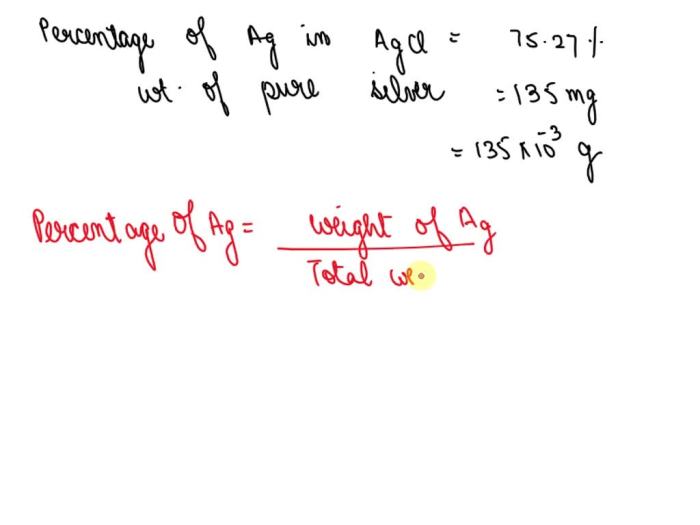 Percentage of Ag in AgCl = 75.27%
wt. of pure silver = 135 mg
= 135 × 10⁻³ g
Percentage of Ag = weight of Ag
Total we